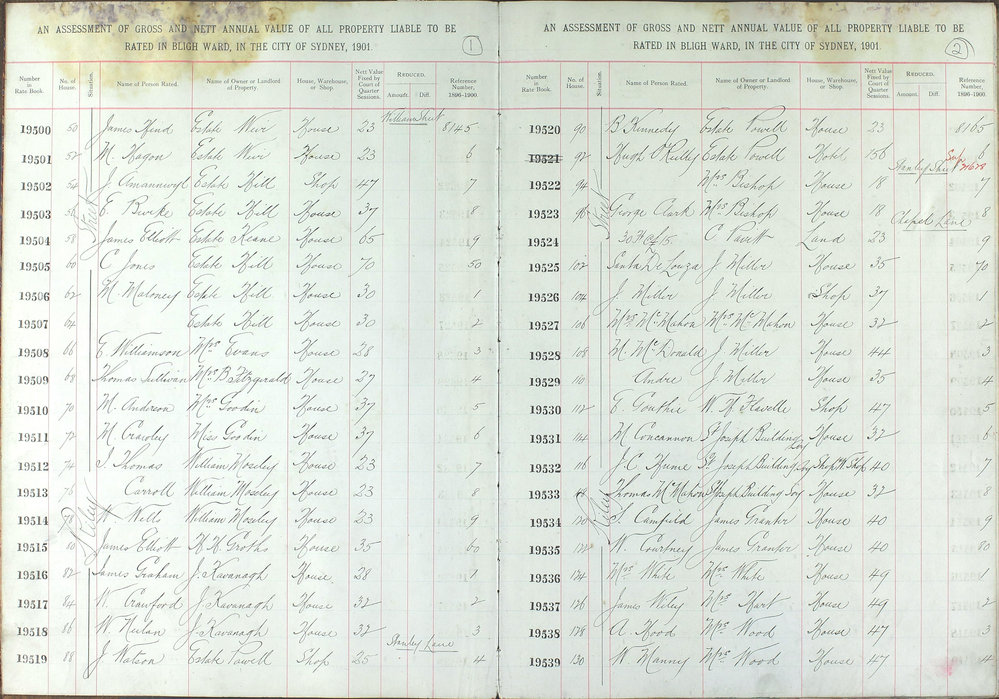 AN ASSESSMENT OF GROSS AND NETT ANNUAL VALUE OF ALL PROPERTY LIABLE TO BE
RATED IN BLIGH WARD, IN THE CITY OF SYDNEY, 1901.
1
Number in Rate Book. No. of House. Situation. Name of Person Rated. Name of Owner or Landlord of Property. House, Warehouse, or Shop. Nett Value Fixed by Court of Quarter Sessions. REDUCED. Amount. Diff. Reference Number, 1896-1900.
William Street
19500 50 James Hind Estate Weir House 23 8145
19501 52 M. Hagon Estate Weir House 23 6
19502 54 J. Estate Hill Shop 47 7
19503 56 E. Burke Estate Hill House 37 8
19504 58 James Elliott Estate Keane House 65 9
19505 60 C. Jones Estate Hill House 70 50
19506 62 M. Maloney Estate Hill House 30 1
19507 64 Estate Hill House 30 2
19508 66 E. Williamson Mrs Evans House 28 3
19509 68 Thomas Sullivan Mrs B. Fitzgerald House 27 4
19510 70 M. Anderson Mrs Goodin House 37 5
19511 72 M. Crawley Miss Goodin House 37 6
19512 74 J. Thomas William Moseley House 23 7
19513 76 Carroll William Moseley House 23 8
19514 78 W. Wells William Moseley House 23 9
19515 80 James Elliott H. H. Groths House 35 60
19516 82 James Graham J. Kavanagh House 28 1
19517 84 W. Crawford J. Kavanagh House 32 2
19518 86 W. J. Kavanagh House 32 3
Stanley Lane
19519 88 J. Watson Estate Powell Shop 25 4
Riley Street
AN ASSESSMENT OF GROSS AND NETT ANNUAL VALUE OF ALL PROPERTY LIABLE TO BE
RATED IN BLIGH WARD, IN THE CITY OF SYDNEY, 1901.
2
Number in Rate Book. No. of House. Situation. Name of Person Rated. Name of Owner or Landlord of Property. House, Warehouse, or Shop. Nett Value Fixed by Court of Quarter Sessions. REDUCED. Amount. Diff. Reference Number, 1896-1900.
19520 90 B. Kennedy Estate Powell House 23 8165
19521 92 Hugh O'Reilly Estate Powell Hotel 156 6
Stanley Street
19522 94 Mrs Bishop House 18 7
19523 96 George Clark Mrs Bishop House 18 8
Chapel Lane
19524 C. Land 23 9
19525 102 Santa De Louza J. Miller House 35 70
19526 104 J. Miller J. Miller Shop 37 1
19527 106 Mrs McMahon Mrs McMahon House 32 2
19528 108 M. McDonald J. Miller House 44 3
19529 110 Andre J. Miller House 35 4
19530 112 E. Gouthie W. H. Flavelle Shop 47 5
19531 114 M. Concannon St Joseph Building Soy House 32 6
19532 116 J. C. Hume St Joseph Building Soy Shop W Shop 40 7
19533 118 Thomas McMahon St Joseph Building Soy House 32 8
19534 120 S. Camfield James Granter House 40 9
19535 122 W. Courtney James Granter House 40 80
19536 124 Mrs White Mrs White House 49 1
19537 126 James Wiley Mrs Hart House 49 2
19538 128 A. Hood Mrs Wood House 47 3
19539 130 W. Manny Mrs Wood House 47 4
Riley Street